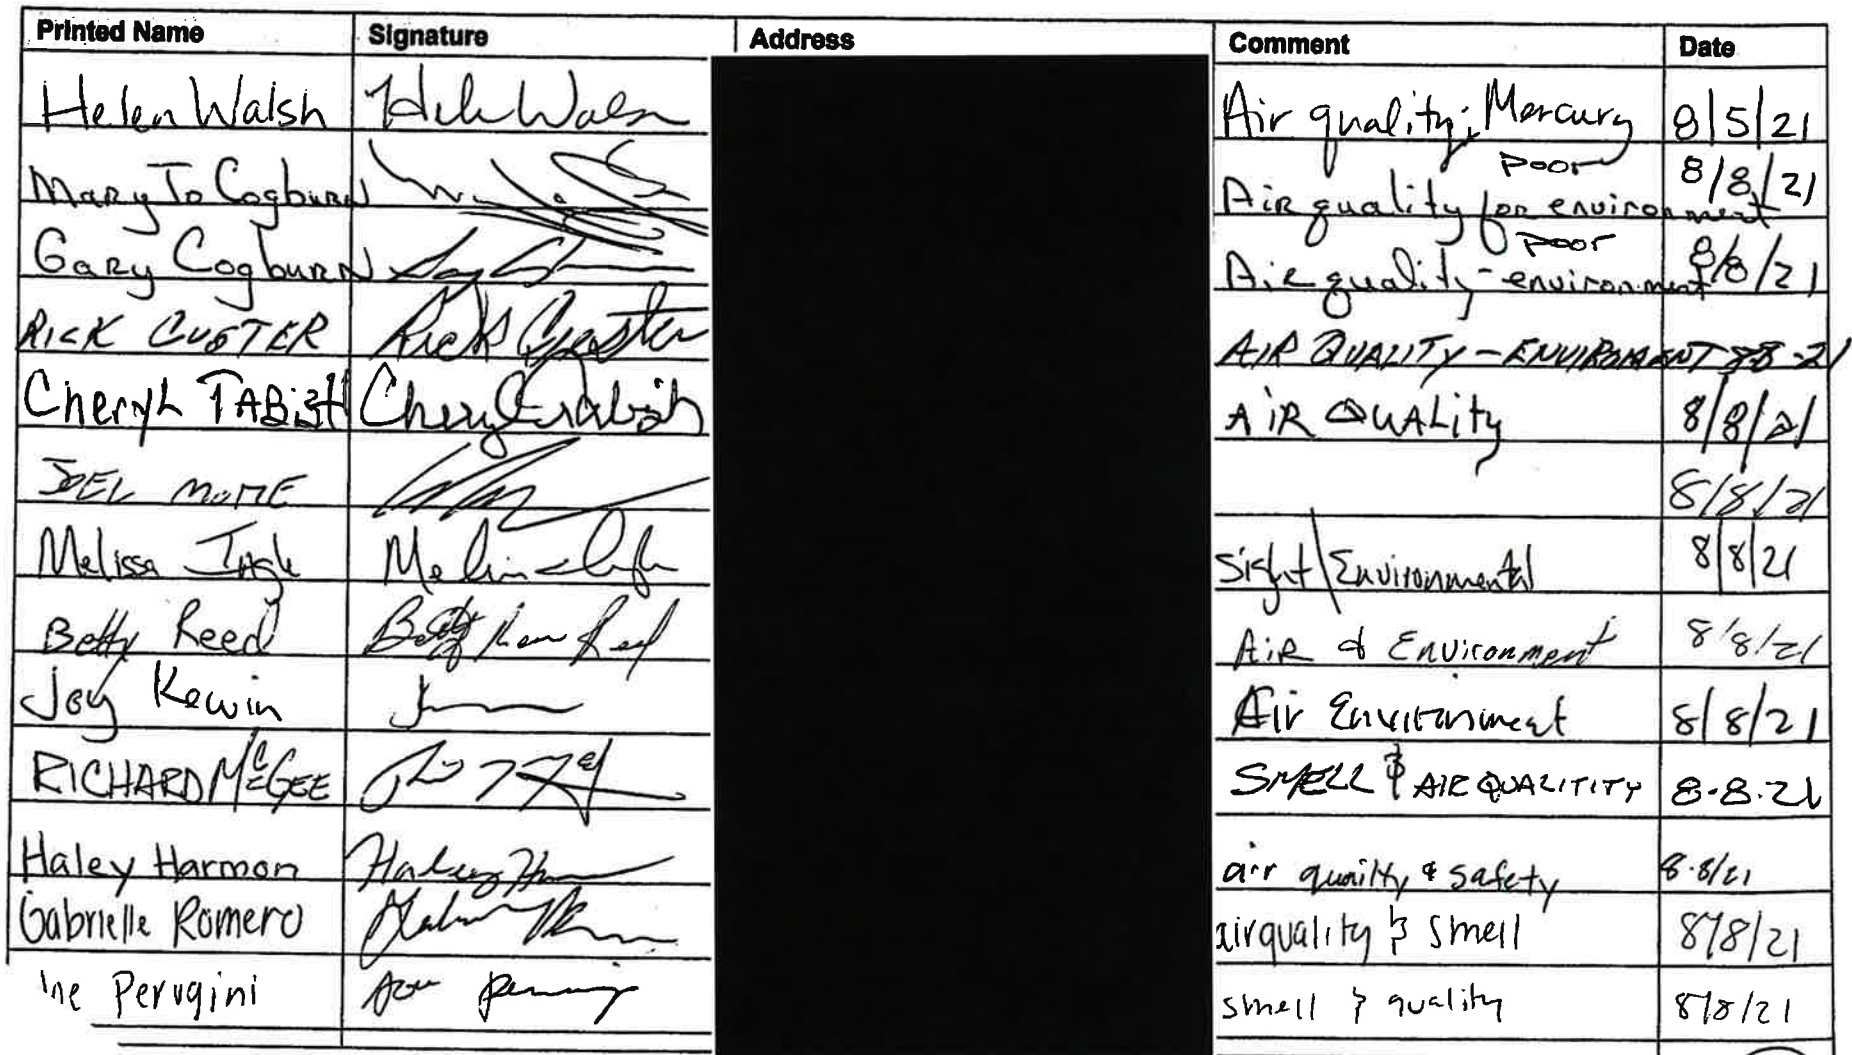 Printed Name Signature Address Comment Date
Helen Walsh Air quality; Mercury 8/5/21
poor
Mary Jo Cogburn Air quality for environment 8/8/21
poor
Gary Cogburn Air quality - environment 8/8/21
RICK CUSTER Rick Custer AIR QUALITY - ENVIROMENT 8-8-21
Cheryl TABISH Cheryl Tabish AIR QUALITY 8/8/21
JOEL 8/8/21
Melissa Ingle Sight/Environmental 8/8/21
Betty Reed Betty Reed Air & Environment 8/8/21
Joy Kewin Air Environment 8/8/21
RICHARD McGEE SMELL & AIR QUALITITY 8-8-21
Haley Harmon Haley air quailty & safety 8-8/21
Gabrielle Romero airquality & smell 8/8/21
Perugini smell & quality 8/8/21